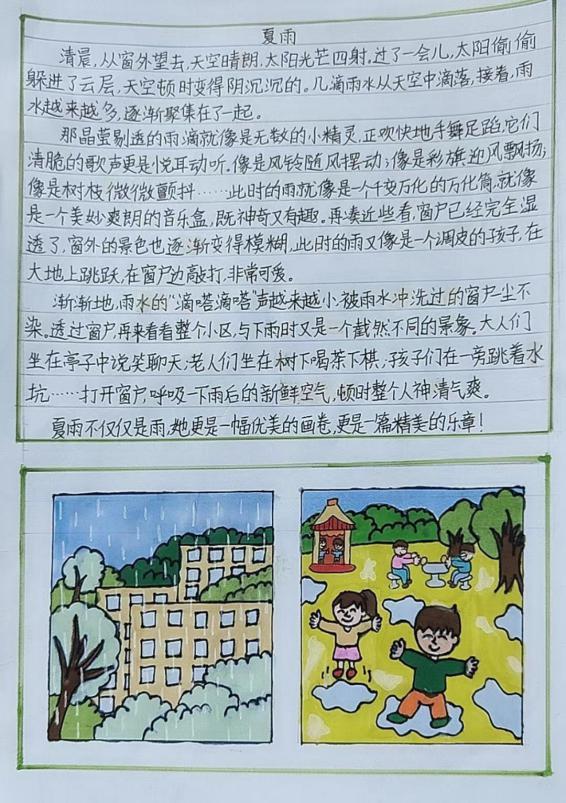 夏雨
清晨，从窗外望去，天空晴朗，太阳光芒四射，过了一会儿，太阳偷偷
躲进了云层，天空顿时变得阴沉沉的。几滴雨水从天空中滴落，接着，雨
水越来越多，逐渐聚集在了一起。
那晶莹剔透的雨滴就像是无数的小精灵，正欢快地手舞足蹈，它们
清脆的歌声更是悦耳动听。像是风铃随风摆动；像是彩旗迎风飘扬；
像是树枝微微颤抖……此时的雨就像是一个千变万化的万化筒，就像
是一个美妙爽朗的音乐盒，既神奇又有趣。再凑近些看，窗户已经完全湿
透了，窗外的景色也逐渐变得模糊，此时的雨又像是一个调皮的孩子，在
大地上跳跃，在窗户边敲打，非常可爱。
渐渐地，雨水的“滴嗒滴嗒”声越来越小，被雨水冲洗过的窗户一尘不
染。透过窗户，再来看看整个小区，与下雨时又是一个截然不同的景象。大人们
坐在亭子中说笑聊天；老人们坐在树下喝茶下棋，孩子们在一旁跳着水
坑……打开窗户呼吸一下雨后的新鲜空气，顿时整个人神清气爽。
夏雨不仅仅是雨，她更是一幅优美的画卷，更是一篇精美的乐章！